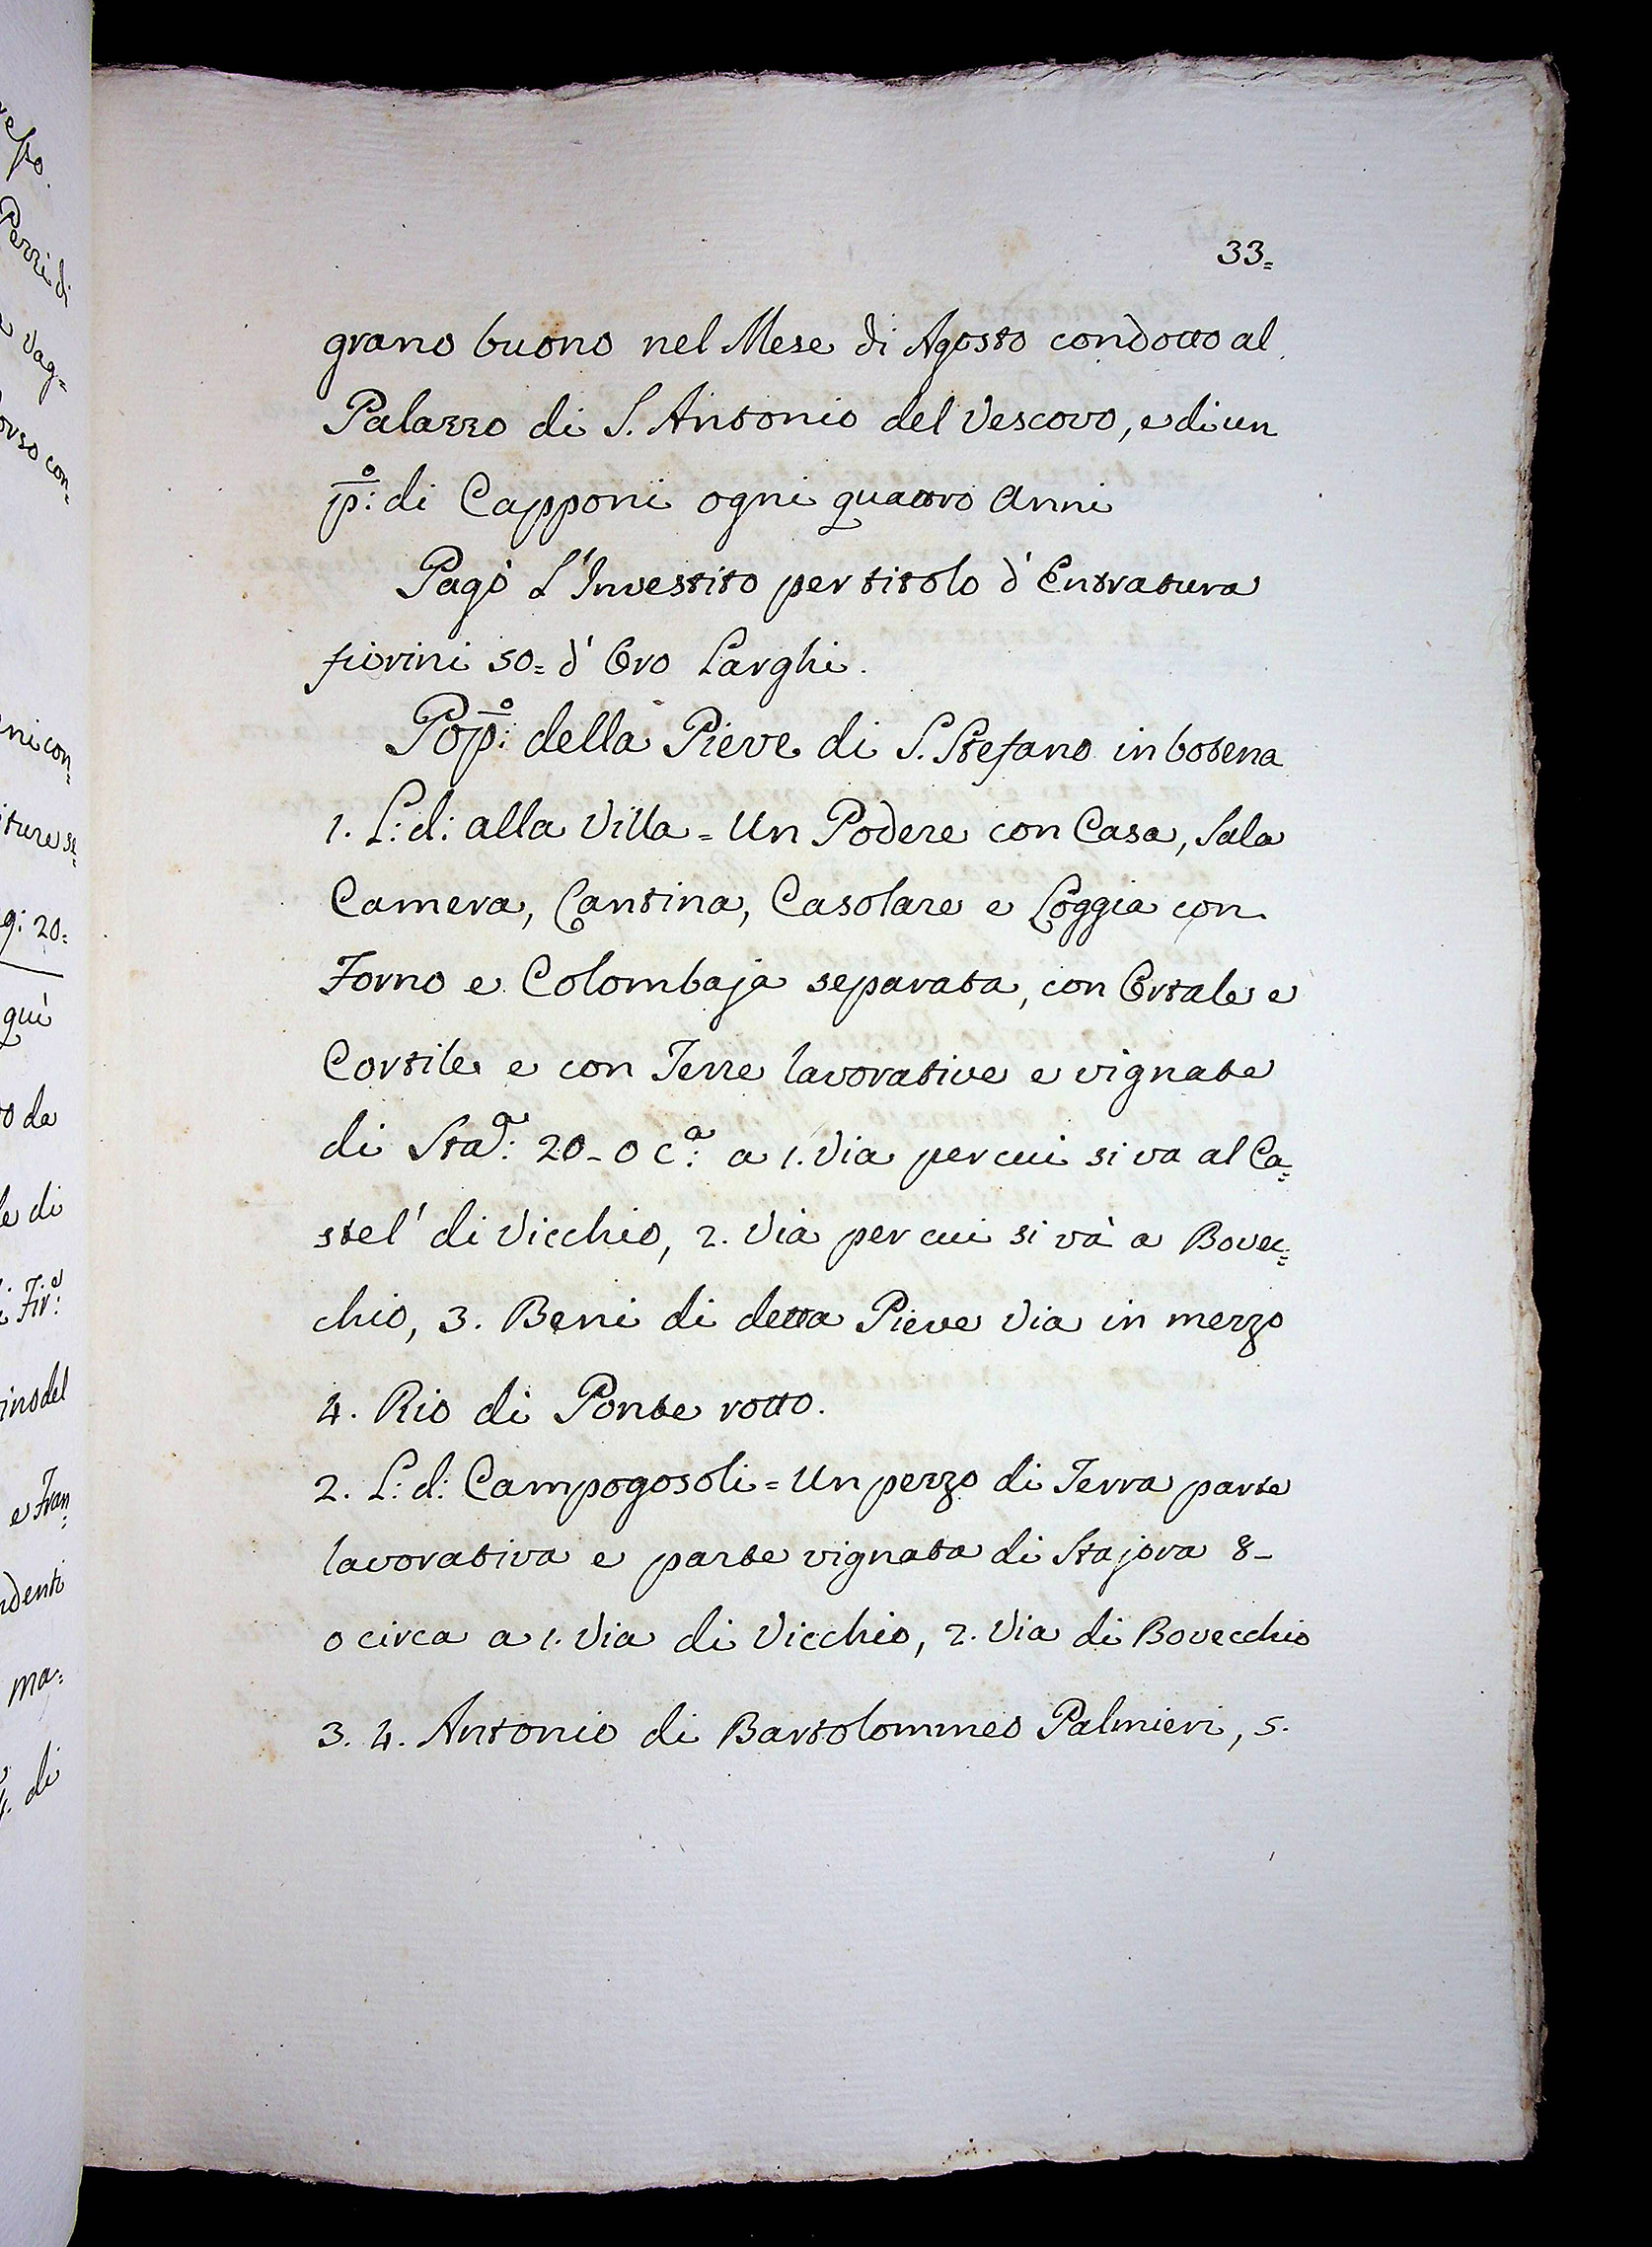 33=
grano buono nel Mese di Agosto condotto al
Palazzo di S. Antonio del Vescovo, e di un
p̄º: di Capponi ogni quattro Anni
Pagò L'Investito per titolo d'Entratura
fiorini 50= d'Oro Larghi.
Pop̄º: della Pieve di S. Stefano in botena
1. L: d: alla Villa = Un Podere con Casa, Sala
Camera, Cantina, Casolare e Loggia con
Forno e Colombaja separata, con Ortale e
Cortile e con Terre lavorative e vignate
di Staª: 20-0 cª: a 1. Via per cui si va al Ca=
stel' di Vicchio, 2. Via per cui si và a Bovec=
chio, 3. Beni di detta Pieve Via in mezzo
4. Rio di Ponte rotto.
2. L: d: Campogosoli = Un pezzo di Terra parte
lavorativa e parte vignata di Stajora 8-
0 circa a 1. Via di Vicchio, 2. Via di Bovecchio
3. 4. Antonio di Bartolommeo Palmieri, 5.